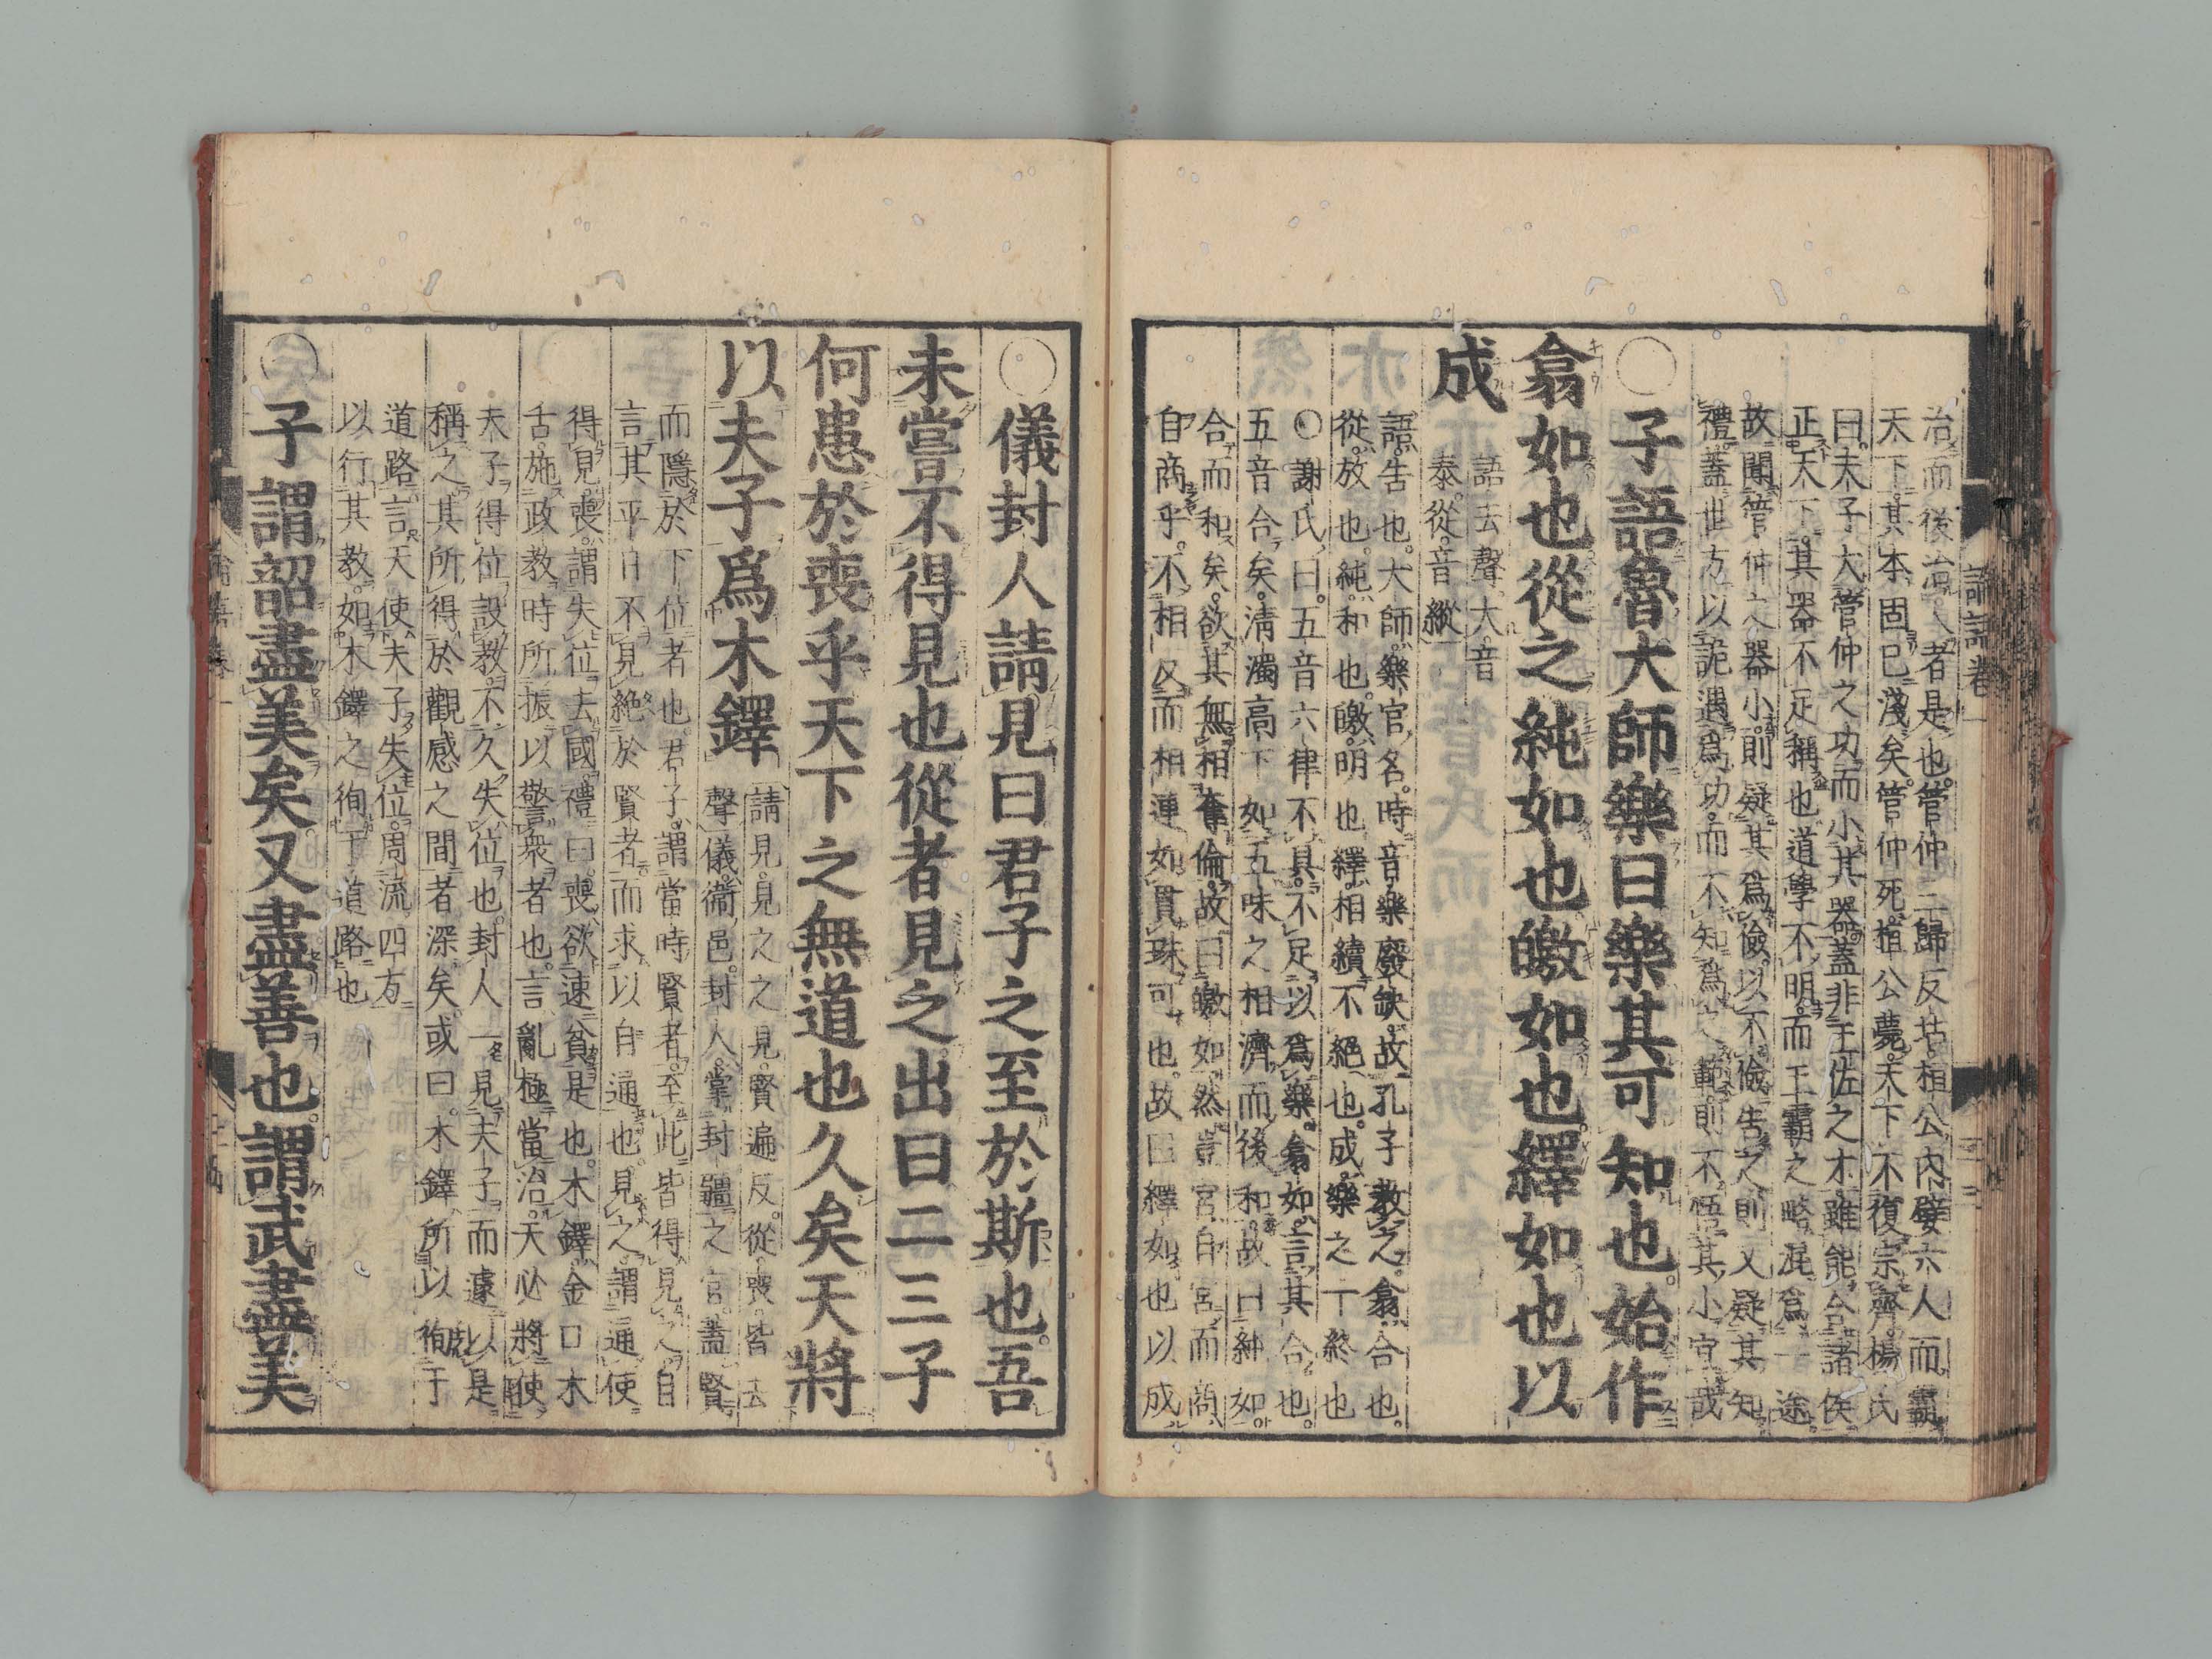 論語卷一
治而後治人者是也管仲三歸反坫桓公內嬖六人而霸
天下其本固已淺矣管仲死桓公薨天下不復宗齊楊氏
曰夫子大管仲之功而小其器蓋非王佐之才雖能合諸侯
正天下其器不足稱也道學不明而王霸之略混爲一途
故聞管仲之器小則疑其爲儉以不儉告之則又疑其知
禮蓋世方以詭遇爲功而不知爲之範則不悟其小宜哉
○子語魯大師樂曰樂其可知也始作
翕如也從之純如也皦如也繹如也以
成
語去聲大音
泰從音縱
語告也大師樂官名時音樂廢缺故孔子敎之翕合也
從放也純和也皦明也繹相續不絕也成樂之一終也
○謝氏曰五音六律不具不足以爲樂翕如言其合也
五音合矣淸濁高下如五味之相濟而後和故曰純如
合而和矣欲其無相奪倫故曰皦如然豈宮自宮而商
自商乎不相反而相連如貫珠可也故曰繹如也以成
○儀封人請見曰君子之至於斯也吾
未嘗不得見也從者見之出曰二三子
何患於喪乎天下之無道也久矣天將
以夫子爲木鐸
請見見之之見賢遍反從喪皆去
聲儀衞邑封人掌封疆之官蓋賢
而隱於下位者也君子謂當時賢者至此皆得見之自
言其平日不見絕於賢者而求以自通也見之謂通使
得見喪謂失位去國禮曰喪欲速貧是也木鐸金口木
舌施政敎時所振以警衆者也言亂極當治天必將使
夫子得位設敎不久失位也封人一見夫子而遽以是
稱之其所得於觀感之間者深矣或曰木鐸所以徇于
道路言天使夫子失位周流四方
以行其敎如木鐸之徇于道路也
○子謂韶盡美矣又盡善也謂武盡美